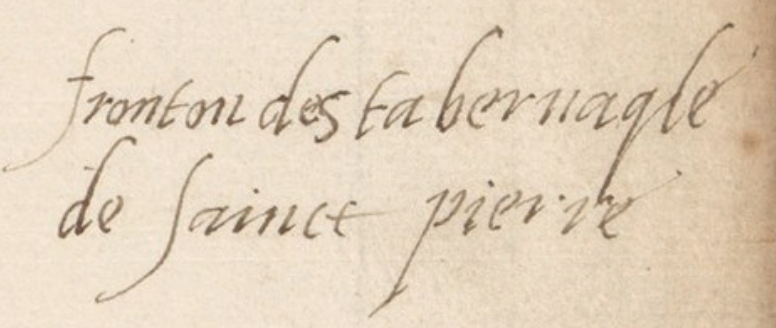 fronton des tabernaqle
de sainct pierre